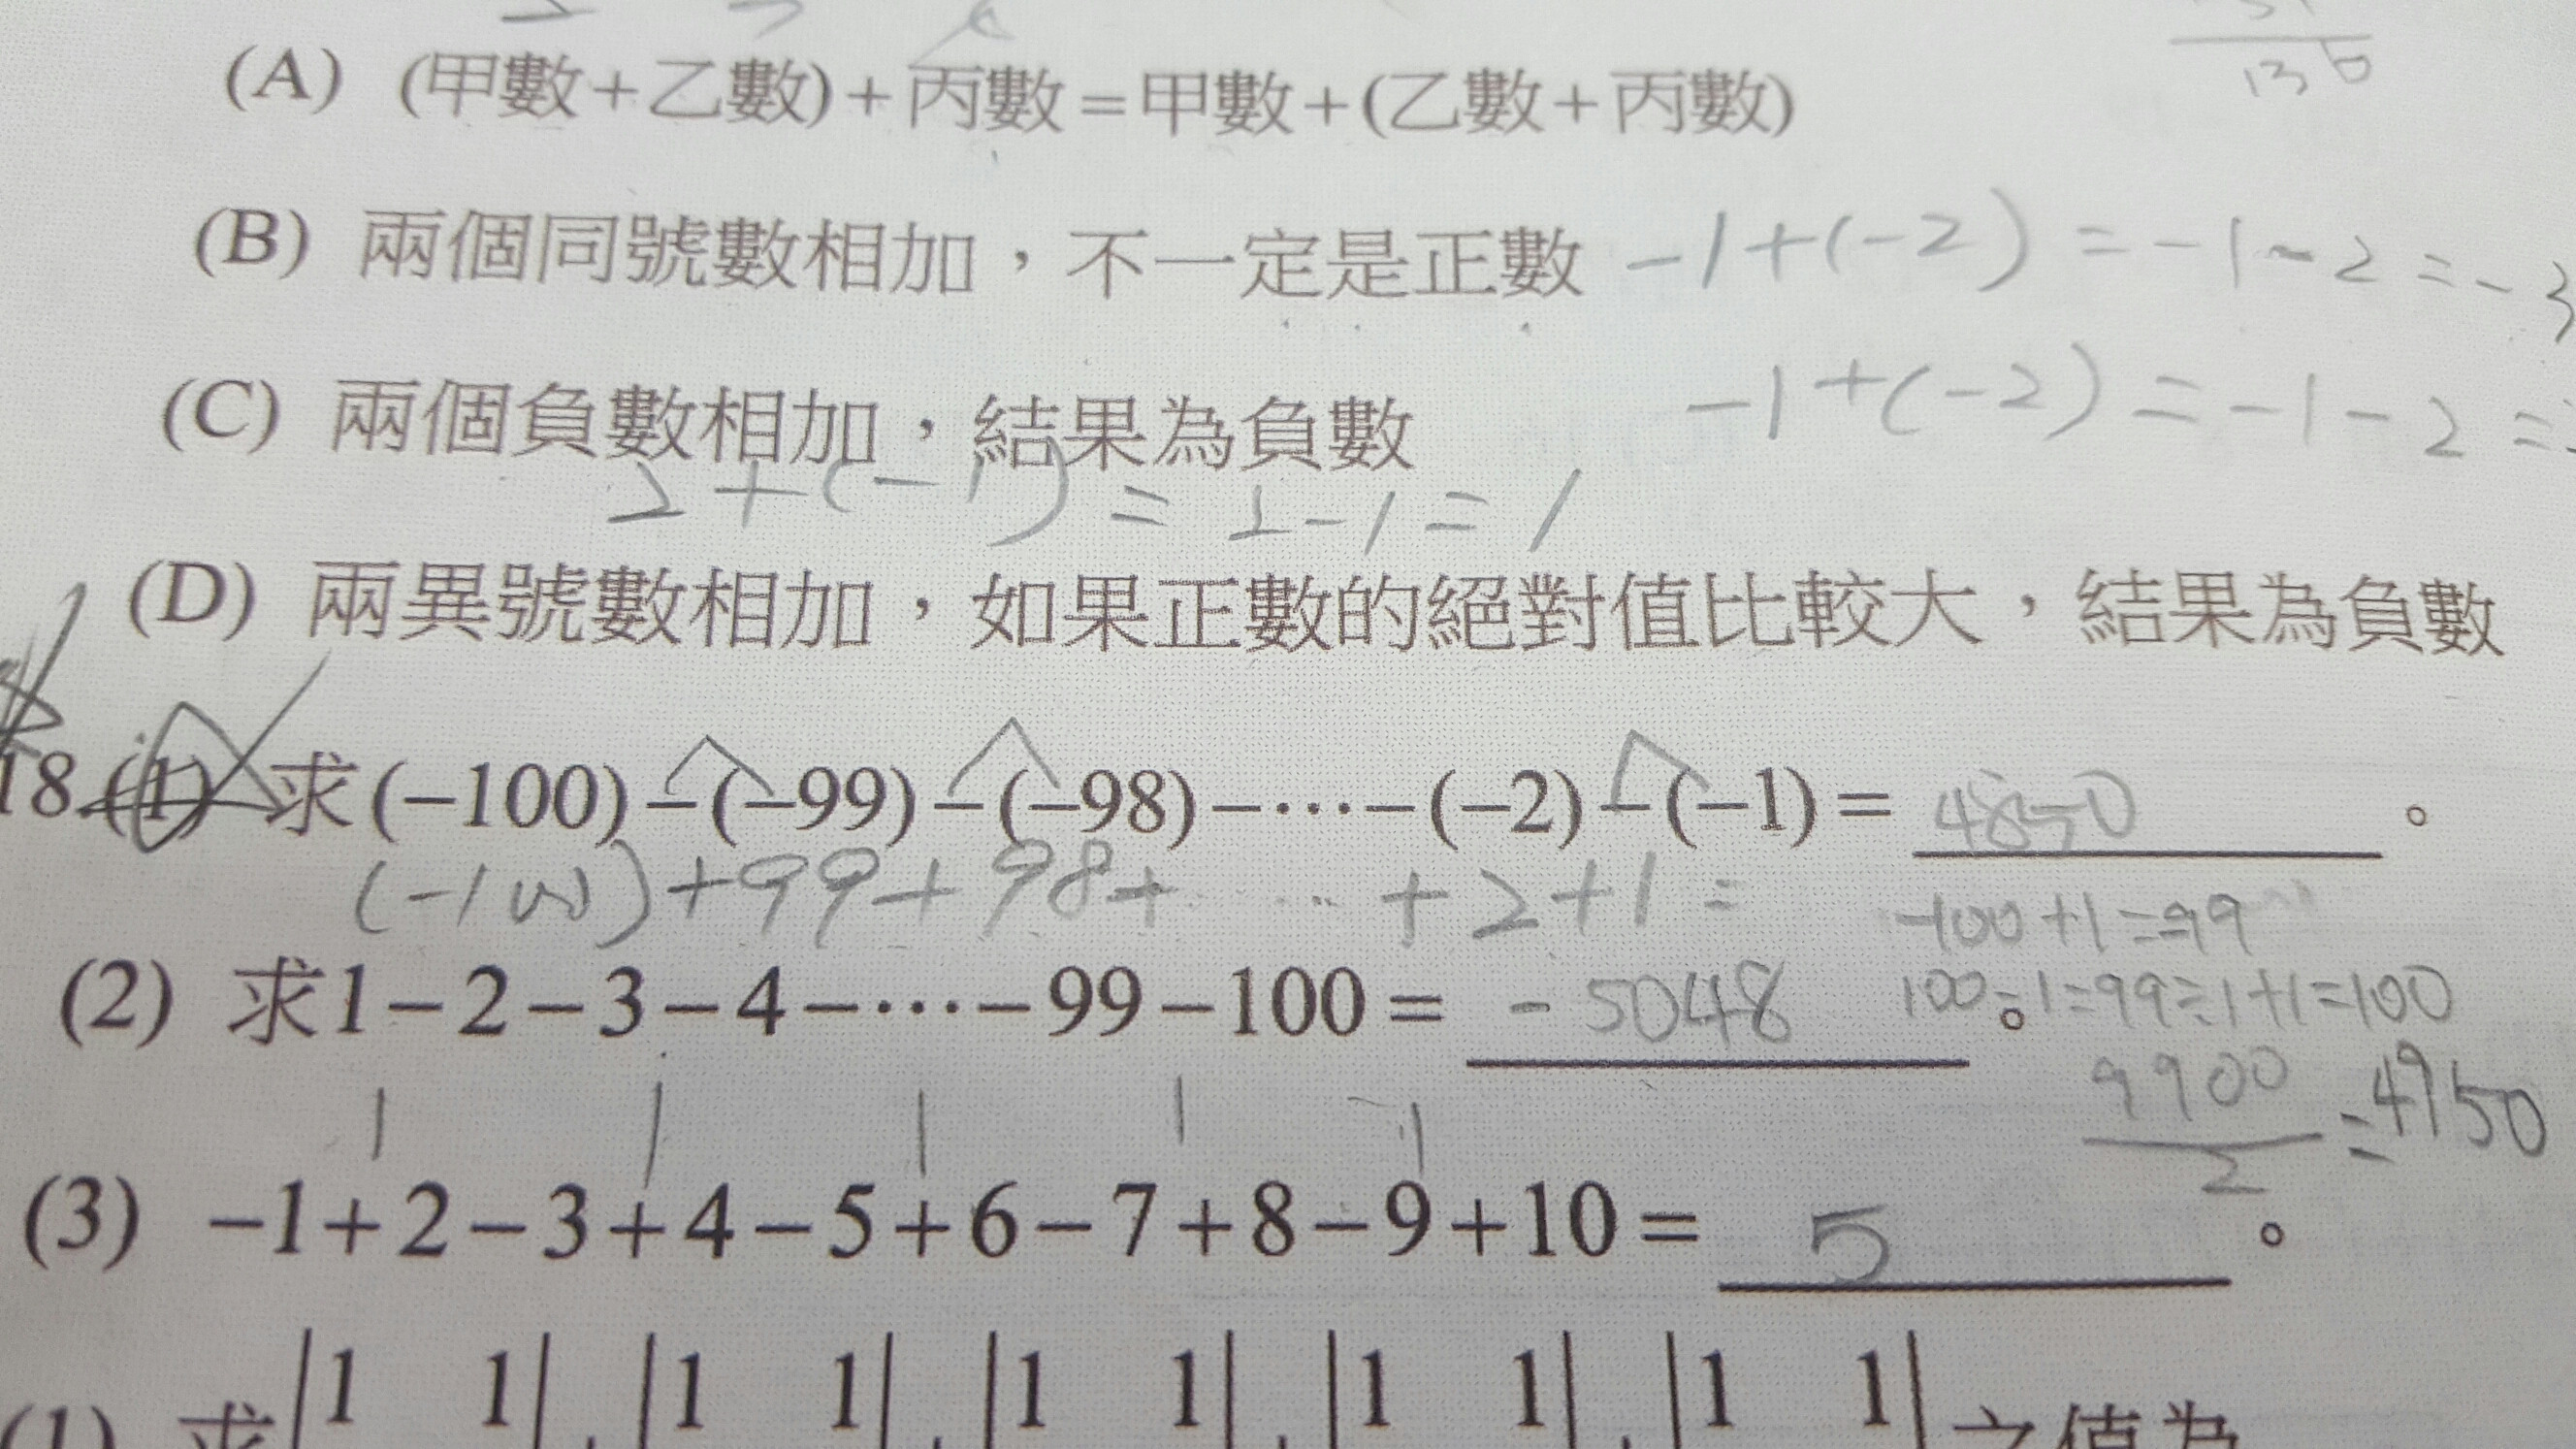 (A) (甲數+乙數)+丙數=甲數+(乙數+丙數)
(B) 兩個同號數相加，不一定是正數 -1+(-2)=-1-2=-3
(C) 兩個負數相加，結果為負數 -1+(-2)=-1-2=
2+(-1)=2-1=1
(D) 兩異號數相加，如果正數的絕對值比較大，結果為負數
18 (1) 求(-100)-(-99)-(-98)-⋯-(-2)-(-1)= 4850 。
(-100)+99+98+⋯+2+1=
-100+1=99
(2) 求1-2-3-4-⋯-99-100= -5048 。
100-1=99÷1+1=100
9900/2=4950
1 1 1 1 1
(3) -1+2-3+4-5+6-7+8-9+10= 5 。
(1) 求|1 1| |1 1| |1 1| |1 1| |1 1|之值為